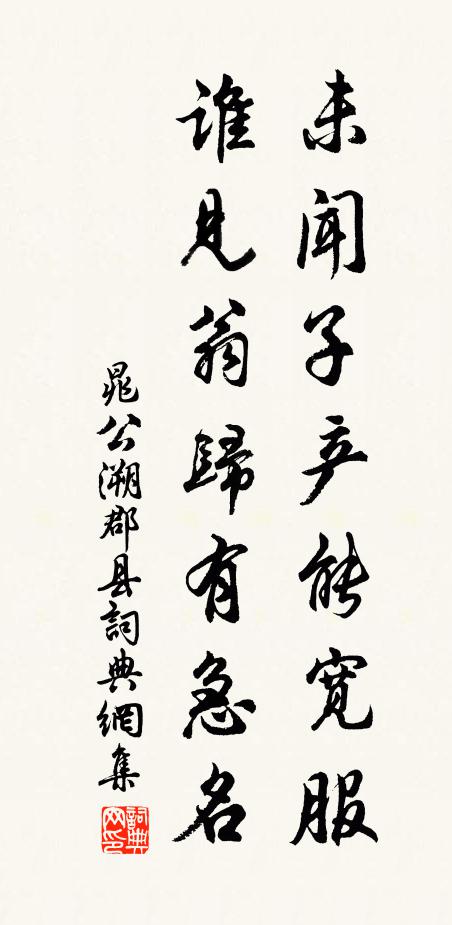 未闻子产能宽服
谁见翁歸有急名
晁公溯郡县詞典網集
詞典網印